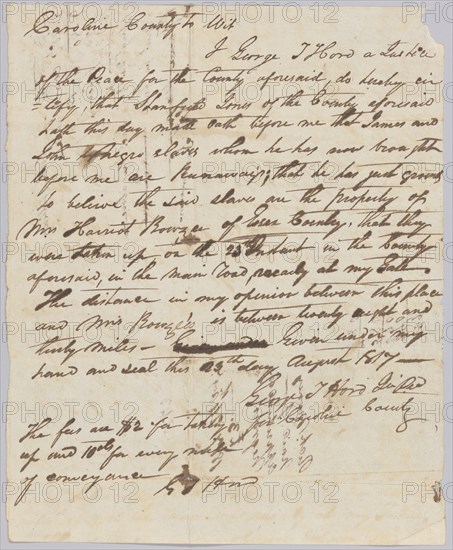 Caroline County to Wit
I George T Hord a Justice
of the Peace for the County aforesaid, do hereby cer
tify, that Stanfield Jones of the County aforesaid
hath this day made oath before me that James and
negro slaves whom he has now brought
before me are Runaways; that he has just grounds
to believe the said slaves are the property of
Mrs Harriot Bowzee of Essex County, that they
were taken up on the 23d Instant in the County
aforesaid, in the main road, nearly at my Gate
The distance in my opinion between this place
and Mrs Bowzee's is between twenty eight and
thirty miles— Given under my
hand and seal this day August 1817—
George T Hord
for Caroline County
The fees are $2 for taking
up and 10cts for every mile
of conveyance
G T Hord
PHOTO12